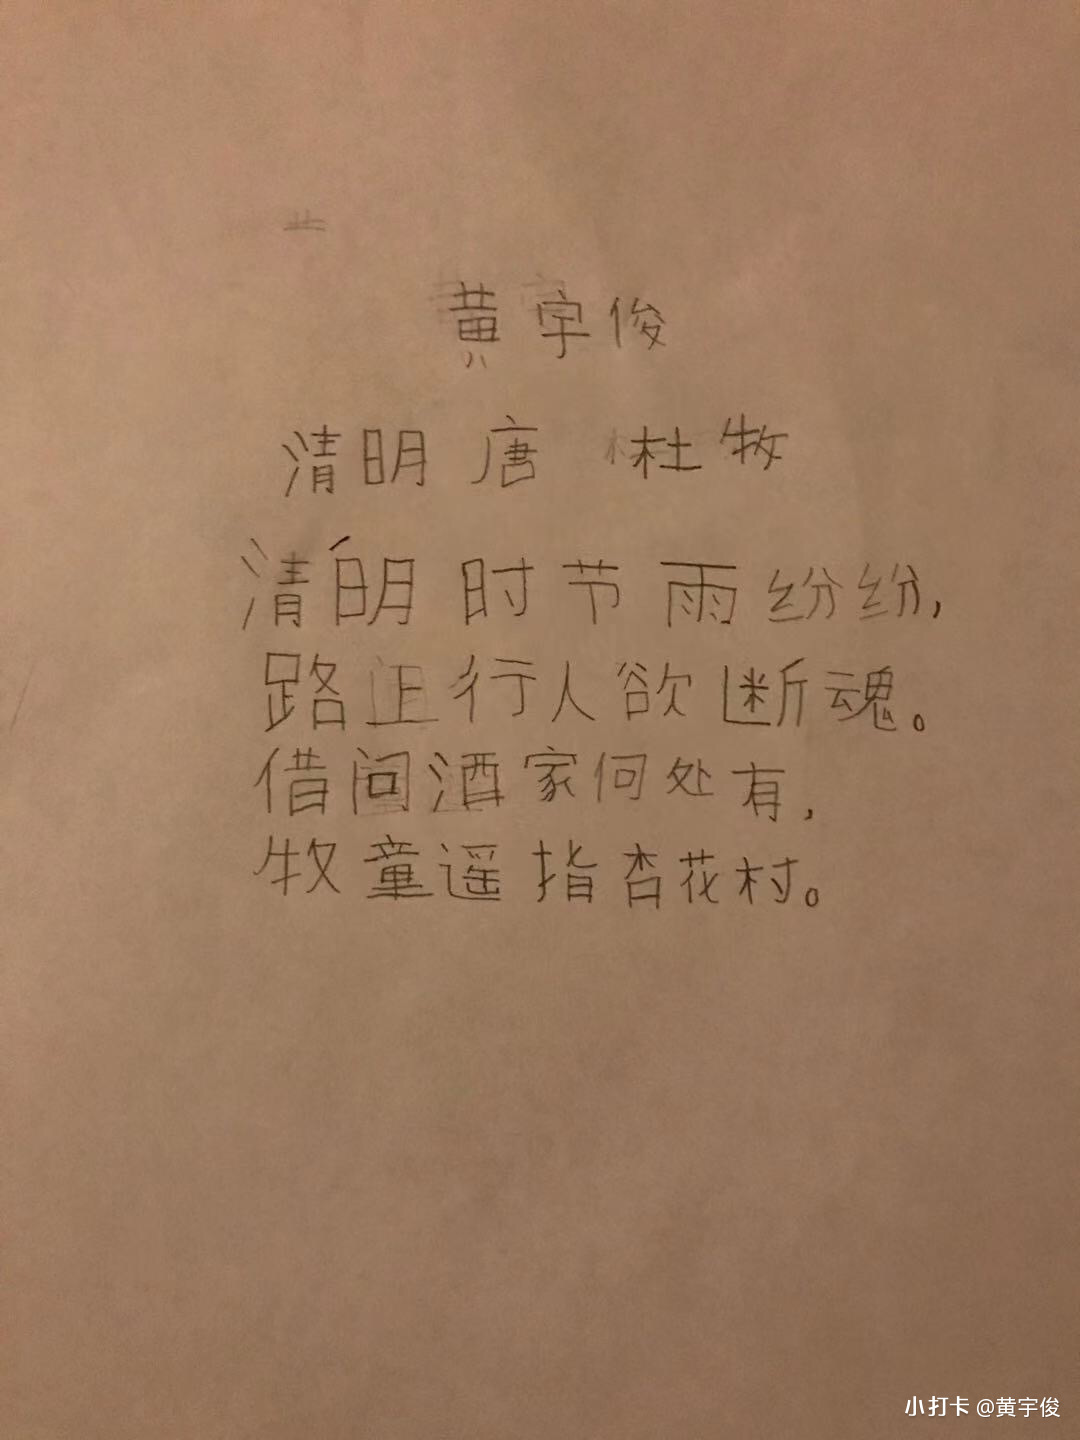 黄宇俊
清明 唐 杜牧
清明时节雨纷纷，
路上行人欲断魂。
借问酒家何处有，
牧童遥指杏花村。
小打卡 @黄宇俊